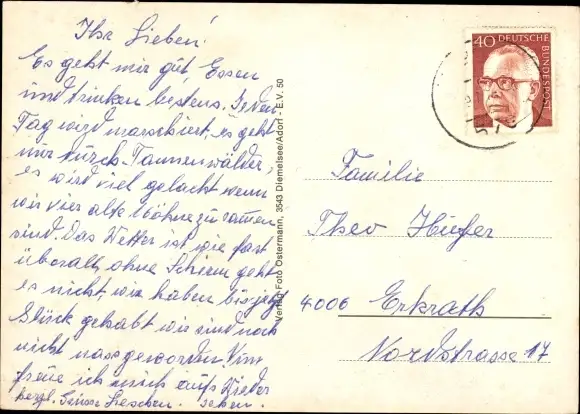 Ihr Lieben!
Es geht mir gut, Essen
und trinken bestens. Jeden
Tag wird marschiert, es geht
nur durch Tannenwälder,
es wird viel gelacht wenn
wir vier alte zusammen
sind. Das Wetter ist wie fast
überall, ohne Schirm geht
es nicht, wir haben bisjetzt
Glück gehabt wir sind noch
nicht nass geworden. Nun
freue ich mich aufs Wieder
sehen.
herzl. Grüsse
Verlag Foto Ostermann, 3543 Diemelsee/Adorf - E.V. 50
40 DEUTSCHE
BUNDESPOST
Familie
Theo Hüfer
4006 Erkrath
Nordstrasse 17